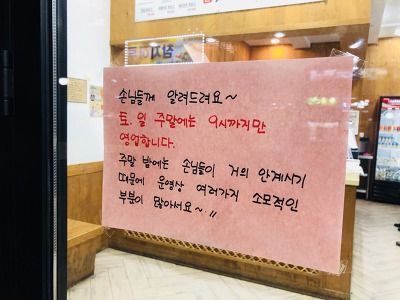 손님들께 알려드려요~
토.일 주말에는 9시까지만
영업합니다.
주말 밤에는 손님들이 거의 안계시기
때문에 운영상 여러가지 소모적인
부분이 많아서요~,,